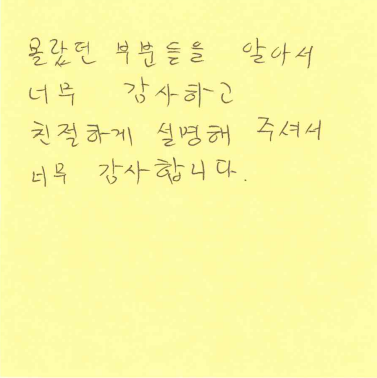 몰랐던 부분들을 알아서
너무 감사하고
친절하게 설명해 주셔서
너무 감사합니다.